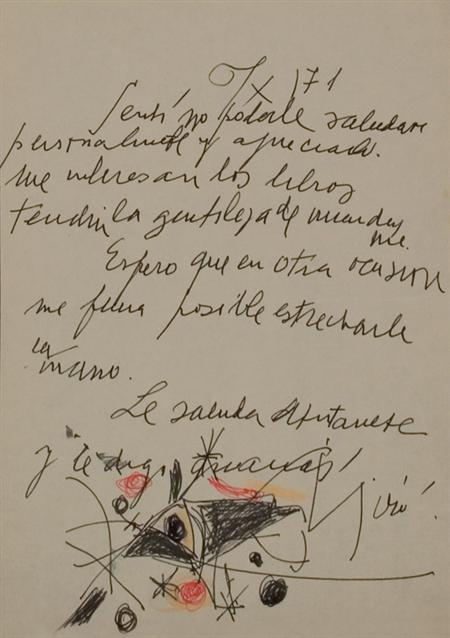 /X 71
Sentí no poderle saludar
personalmente y
me interesan los libros
Tendrá la gentileza de mandar
me.
Espero que en otra ocasión
me fuera posible estrecharle
la
mano.
Le saluda
y le digo gracias!
Miró.